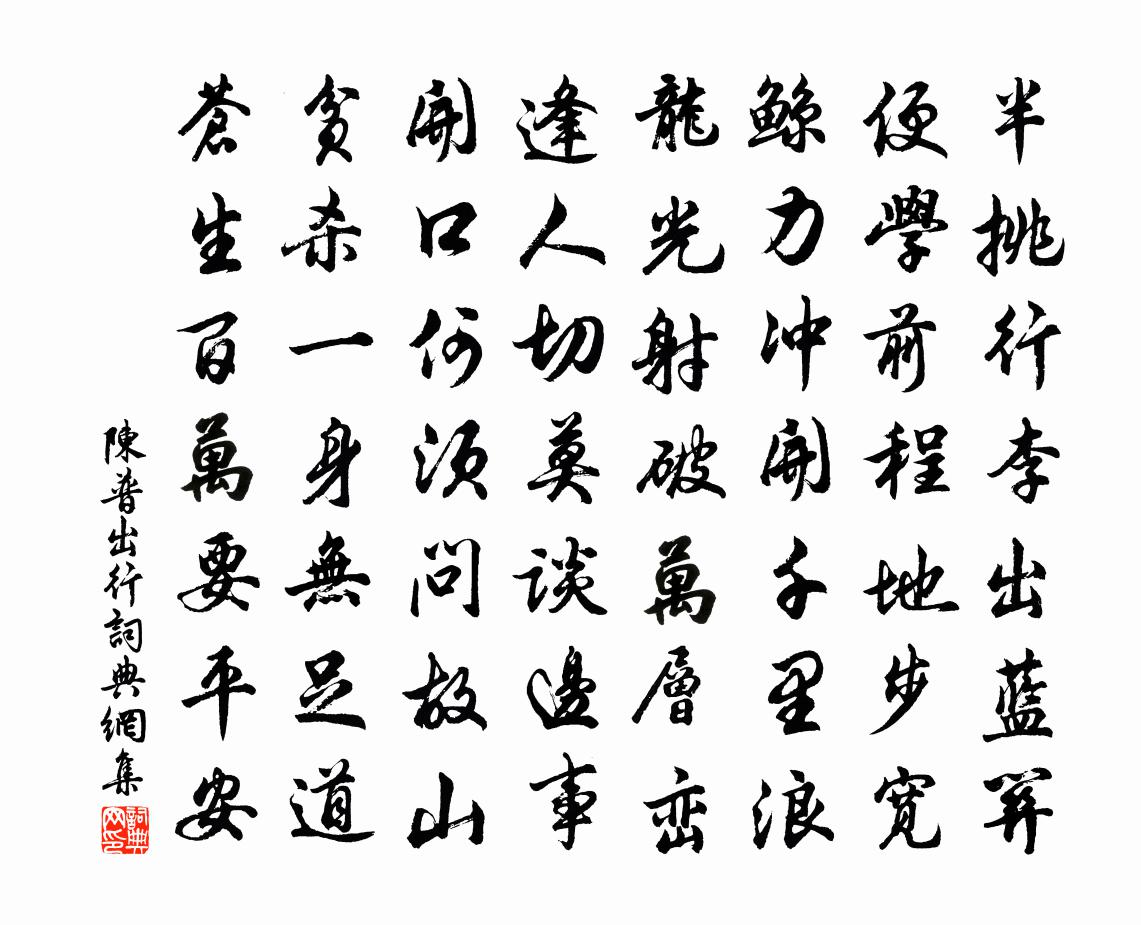 半挑行李出藍關
便學前程地步寬
鯨力冲開千里浪
龍光射破萬層巒
逢人切莫談邊事
開口何須問故山
貧杀一身無足道
蒼生百萬要平安
陳普出行詞典網集
詞典网印